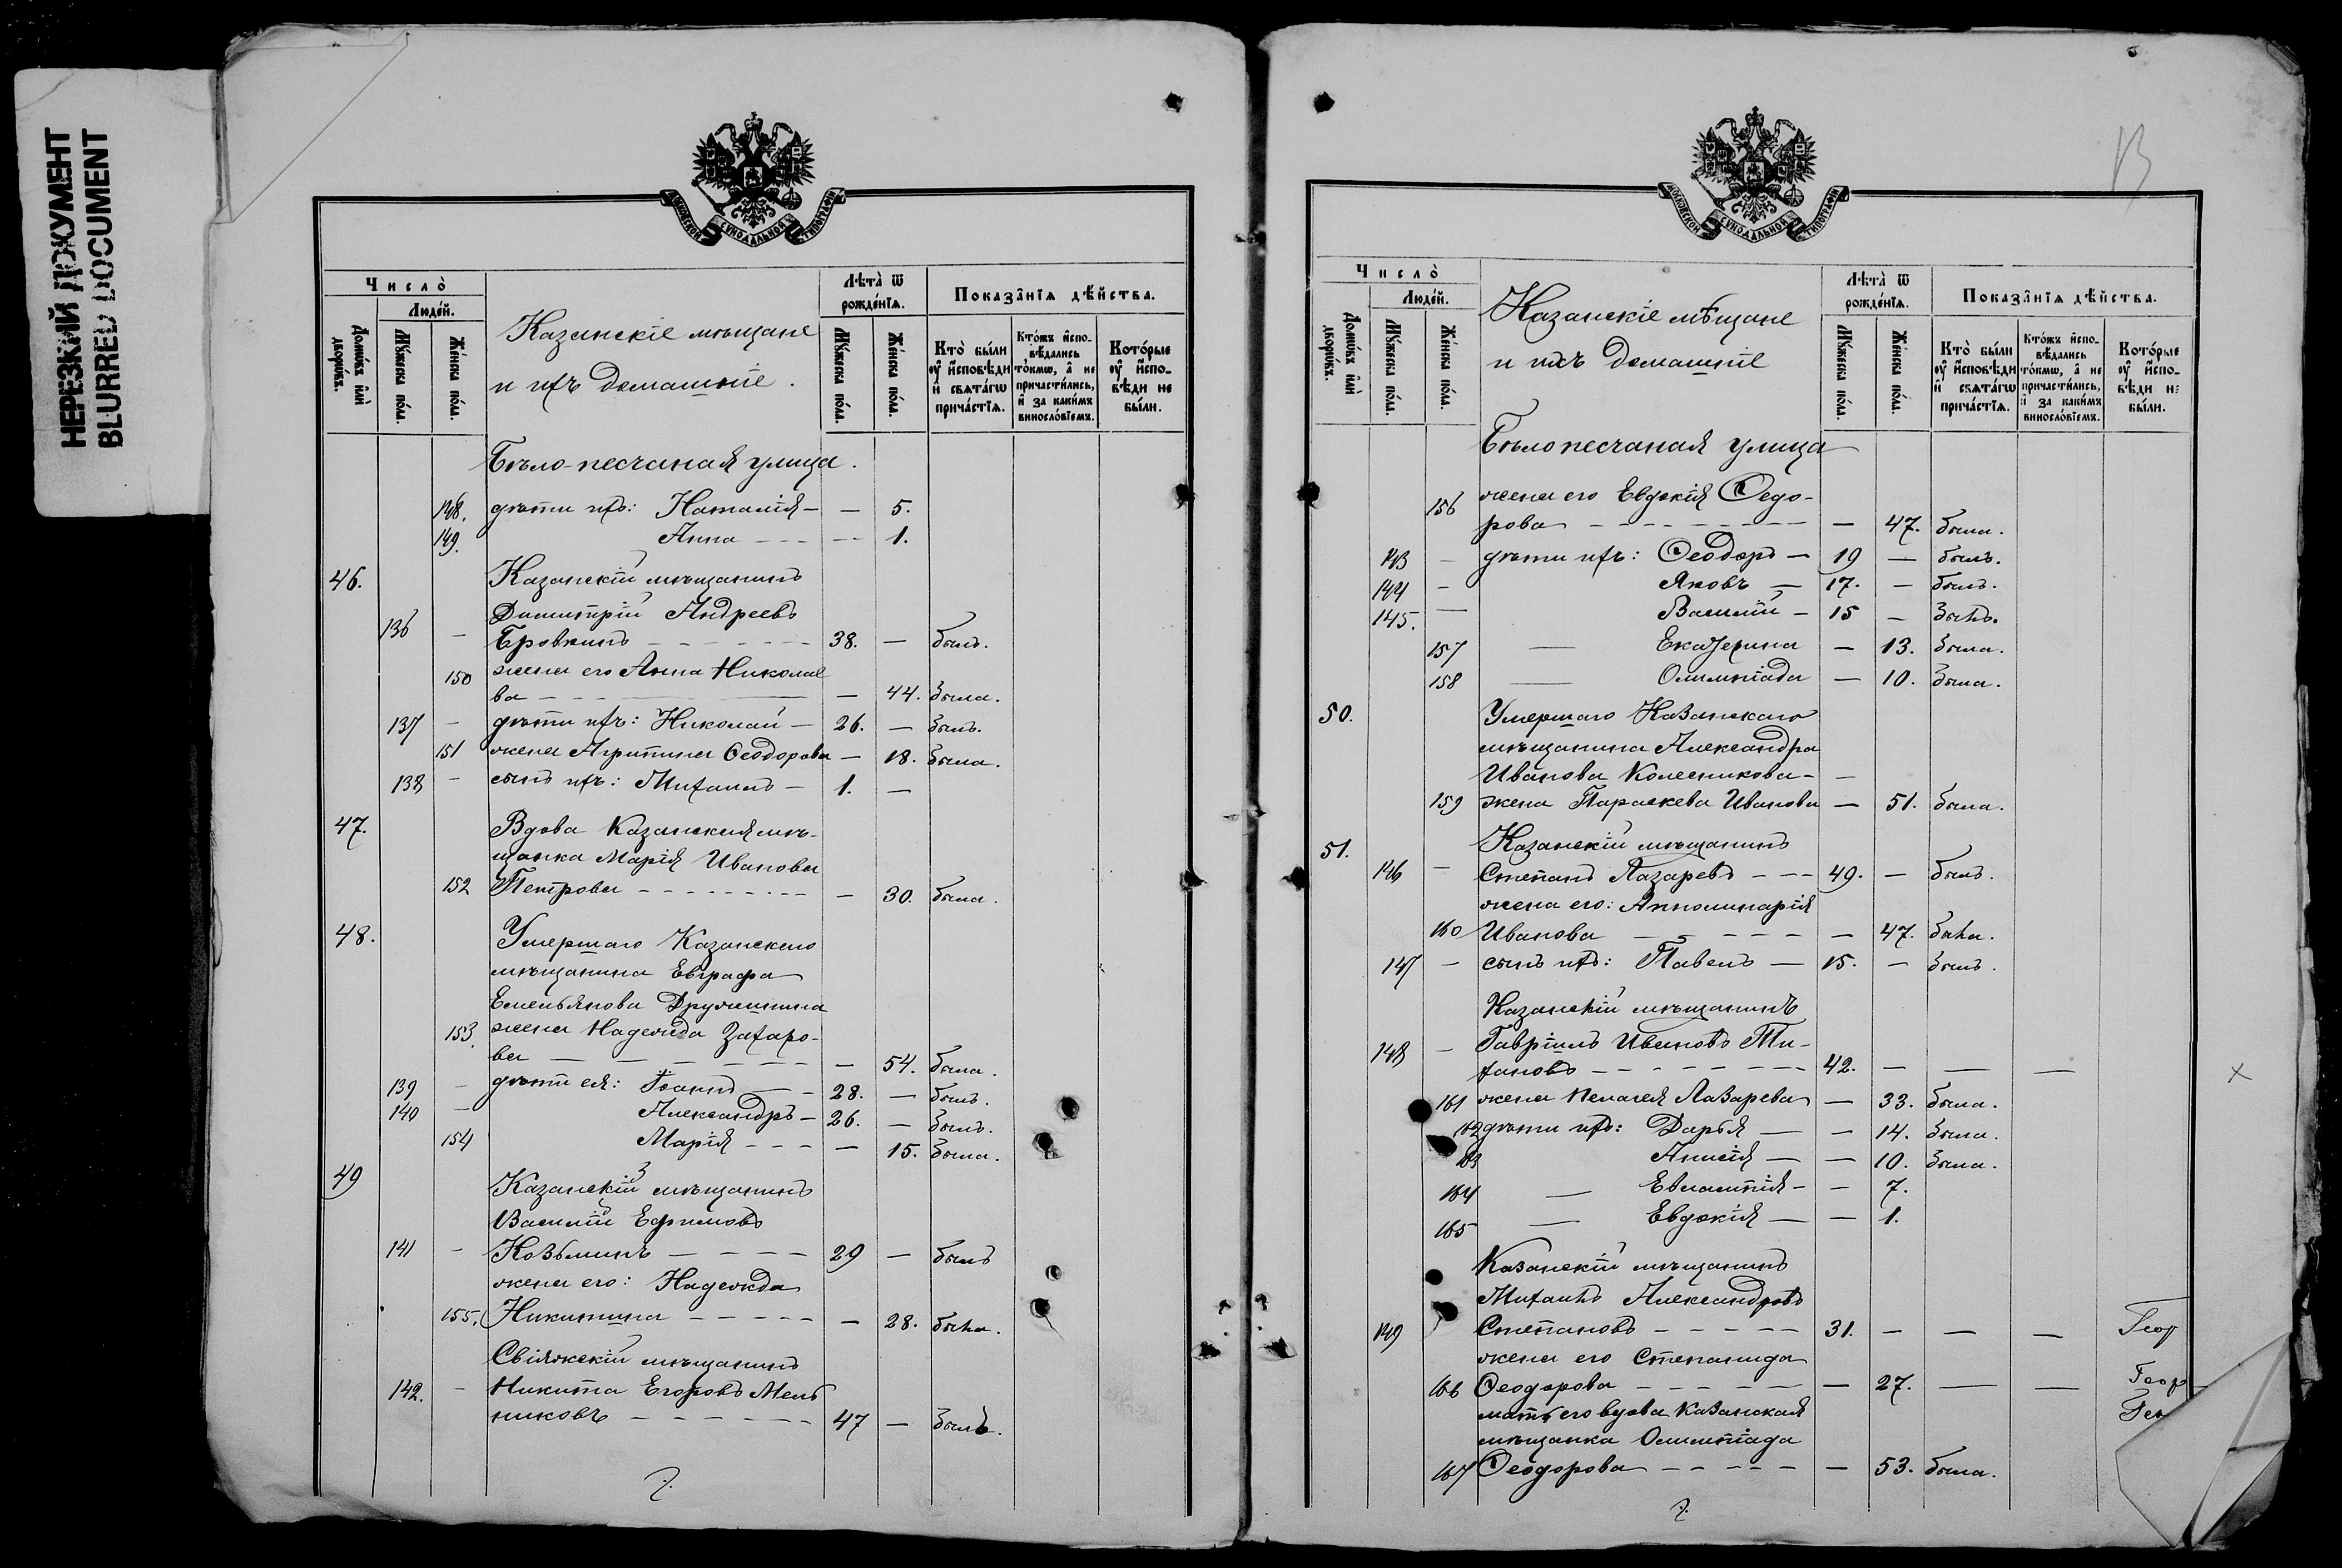 НЕРЕЗКИЙ ДОКУМЕНТ
BLURRED DOCUMENT
МОСКОВСКОЙ СѴНОДАЛЬНОЙ ТИПОГРАФІИ
Число̀
Людéй.
Домѡ́въ и҆лѝ дворѡ́въ.
Мꙋ́жеска по́ла.
Же́нска по́ла.
Казанскіе мѣщане
и ихъ домашніе.
Лѣ́та ѿ рожде́нїѧ.
Мꙋ́жеска по́ла.
Же́нска по́ла.
Показа̑нїѧ дѣ́йства.
Кто̀ бы́ли ᲂу҆ и҆спо́вѣди и҆ свѧта́гѡ прича́стїѧ.
Кто́жъ и҆спо-вѣ́дались то́кмѡ, а҆ не причасти́лись, и҆ за каки́мъ винослóвїемъ.
Кото́рые ᲂу҆ и҆спо-вѣди не бы́ли.
Бѣло-песчаная улица.
148. дѣти ихъ: Наталія — — 5.
149. Анна — — 1.
46. Казанскій мѣщанинъ
Димитрій Андреевъ
136 — Бровкинъ — 38. — былъ.
150 жена его Анна Николае
ва — — 44. была.
137 — дѣти ихъ: Николай — 26. — былъ.
151 жена Агрипина Ѳеодорова — 18. была.
138 — сынъ ихъ: Михаилъ — 1. —
47. Вдова Казанская мѣ-
щанка Марія Иванова
152 Петрова — — 30. была.
48. Умершаго Казанскаго
мѣщанина Евграфа
Емельянова Дружинина
153. жена Надежда Захаро-
ва — — 54. была.
139 — дѣти ея: Іоаннъ — 28. — былъ.
140 — Александръ — 26. — былъ.
154 Марія — — 15. была.
49 Казанскій мѣщанинъ
Василій Ефимовъ
141 — Козьминъ — 29 — былъ
жена его: Надежда
155. Никитина — — 28. была.
Свіяжскій мѣщанинъ
142. — Никита Егоровъ Мель
никовъ — 47 — былъ.
МОСКОВСКОЙ СѴНОДАЛЬНОЙ ТИПОГРАФІИ
Число̀
Людéй.
Домѡ́въ и҆лѝ дворѡ́въ.
Мꙋ́жеска по́ла.
Же́нска по́ла.
Казанскіе мѣщане
и ихъ домашніе
Лѣ́та ѿ рожде́нїѧ.
Мꙋ́жеска по́ла.
Же́нска по́ла.
Показа̑нїѧ дѣ́йства.
Кто̀ бы́ли ᲂу҆ и҆спо́вѣди и҆ свѧта́гѡ прича́стїѧ.
Кто́жъ и҆спо-вѣ́дались то́кмѡ, а҆ не причасти́лись, и҆ за каки́мъ винослóвїемъ.
Кото́рые ᲂу҆ и҆спо-вѣди не бы́ли.
Бѣлопесчаная улица
156 жена его Евдокія Ѳедо-
рова — — 47. была.
143 — дѣти ихъ: Ѳеодоръ — 19 — былъ.
144 — Яковъ — 17. — былъ.
145. — Василій — 15 — былъ.
157 — Екатерина — 13. была.
158 — Олимпіада — 10. была.
50. Умершаго Казанскаго
мѣщанина Александра
Иванова Колесникова —
159 жена Параскева Иванова — 51. была.
51. Казанскій мѣщанинъ
146 — Степанъ Лазаревъ — 49. — былъ.
жена его: Апполинарія
160 Иванова — — 47. была.
147 — сынъ ихъ: Павелъ — 15. — былъ.
Казанскій мѣщанинъ
148 — Гавріилъ Ивановъ Ти-
хановъ — 42. — — —
161 жена Пелагея Лазарева — 33. была.
162 дѣти ихъ: Дарья — — 14. была.
163 Анисія — — 10. была.
164 — Евлампія — — 7.
165 — Евдокія — — 1.
Казанскій мѣщанинъ
Михаилъ Александровъ
149 Степановъ — 31. — — — Геор
жена его Степанида
166 Ѳеодорова — — 27. — — Геор
мать его вдова Казанская
мѣщанка Олимпіада
167 Ѳеодорова — — 53. была.